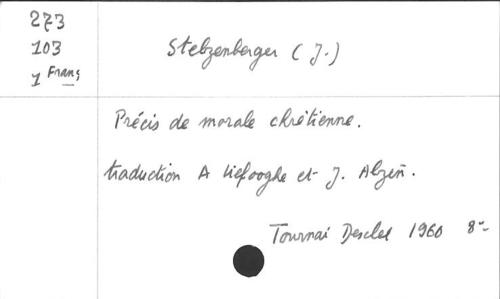 273
103
1 Franç
Stelzenberger (J.)
Précis de morale chrétienne.
traduction A Liefooghe et J. Alzin.
Tournai Desclel 1960 8°